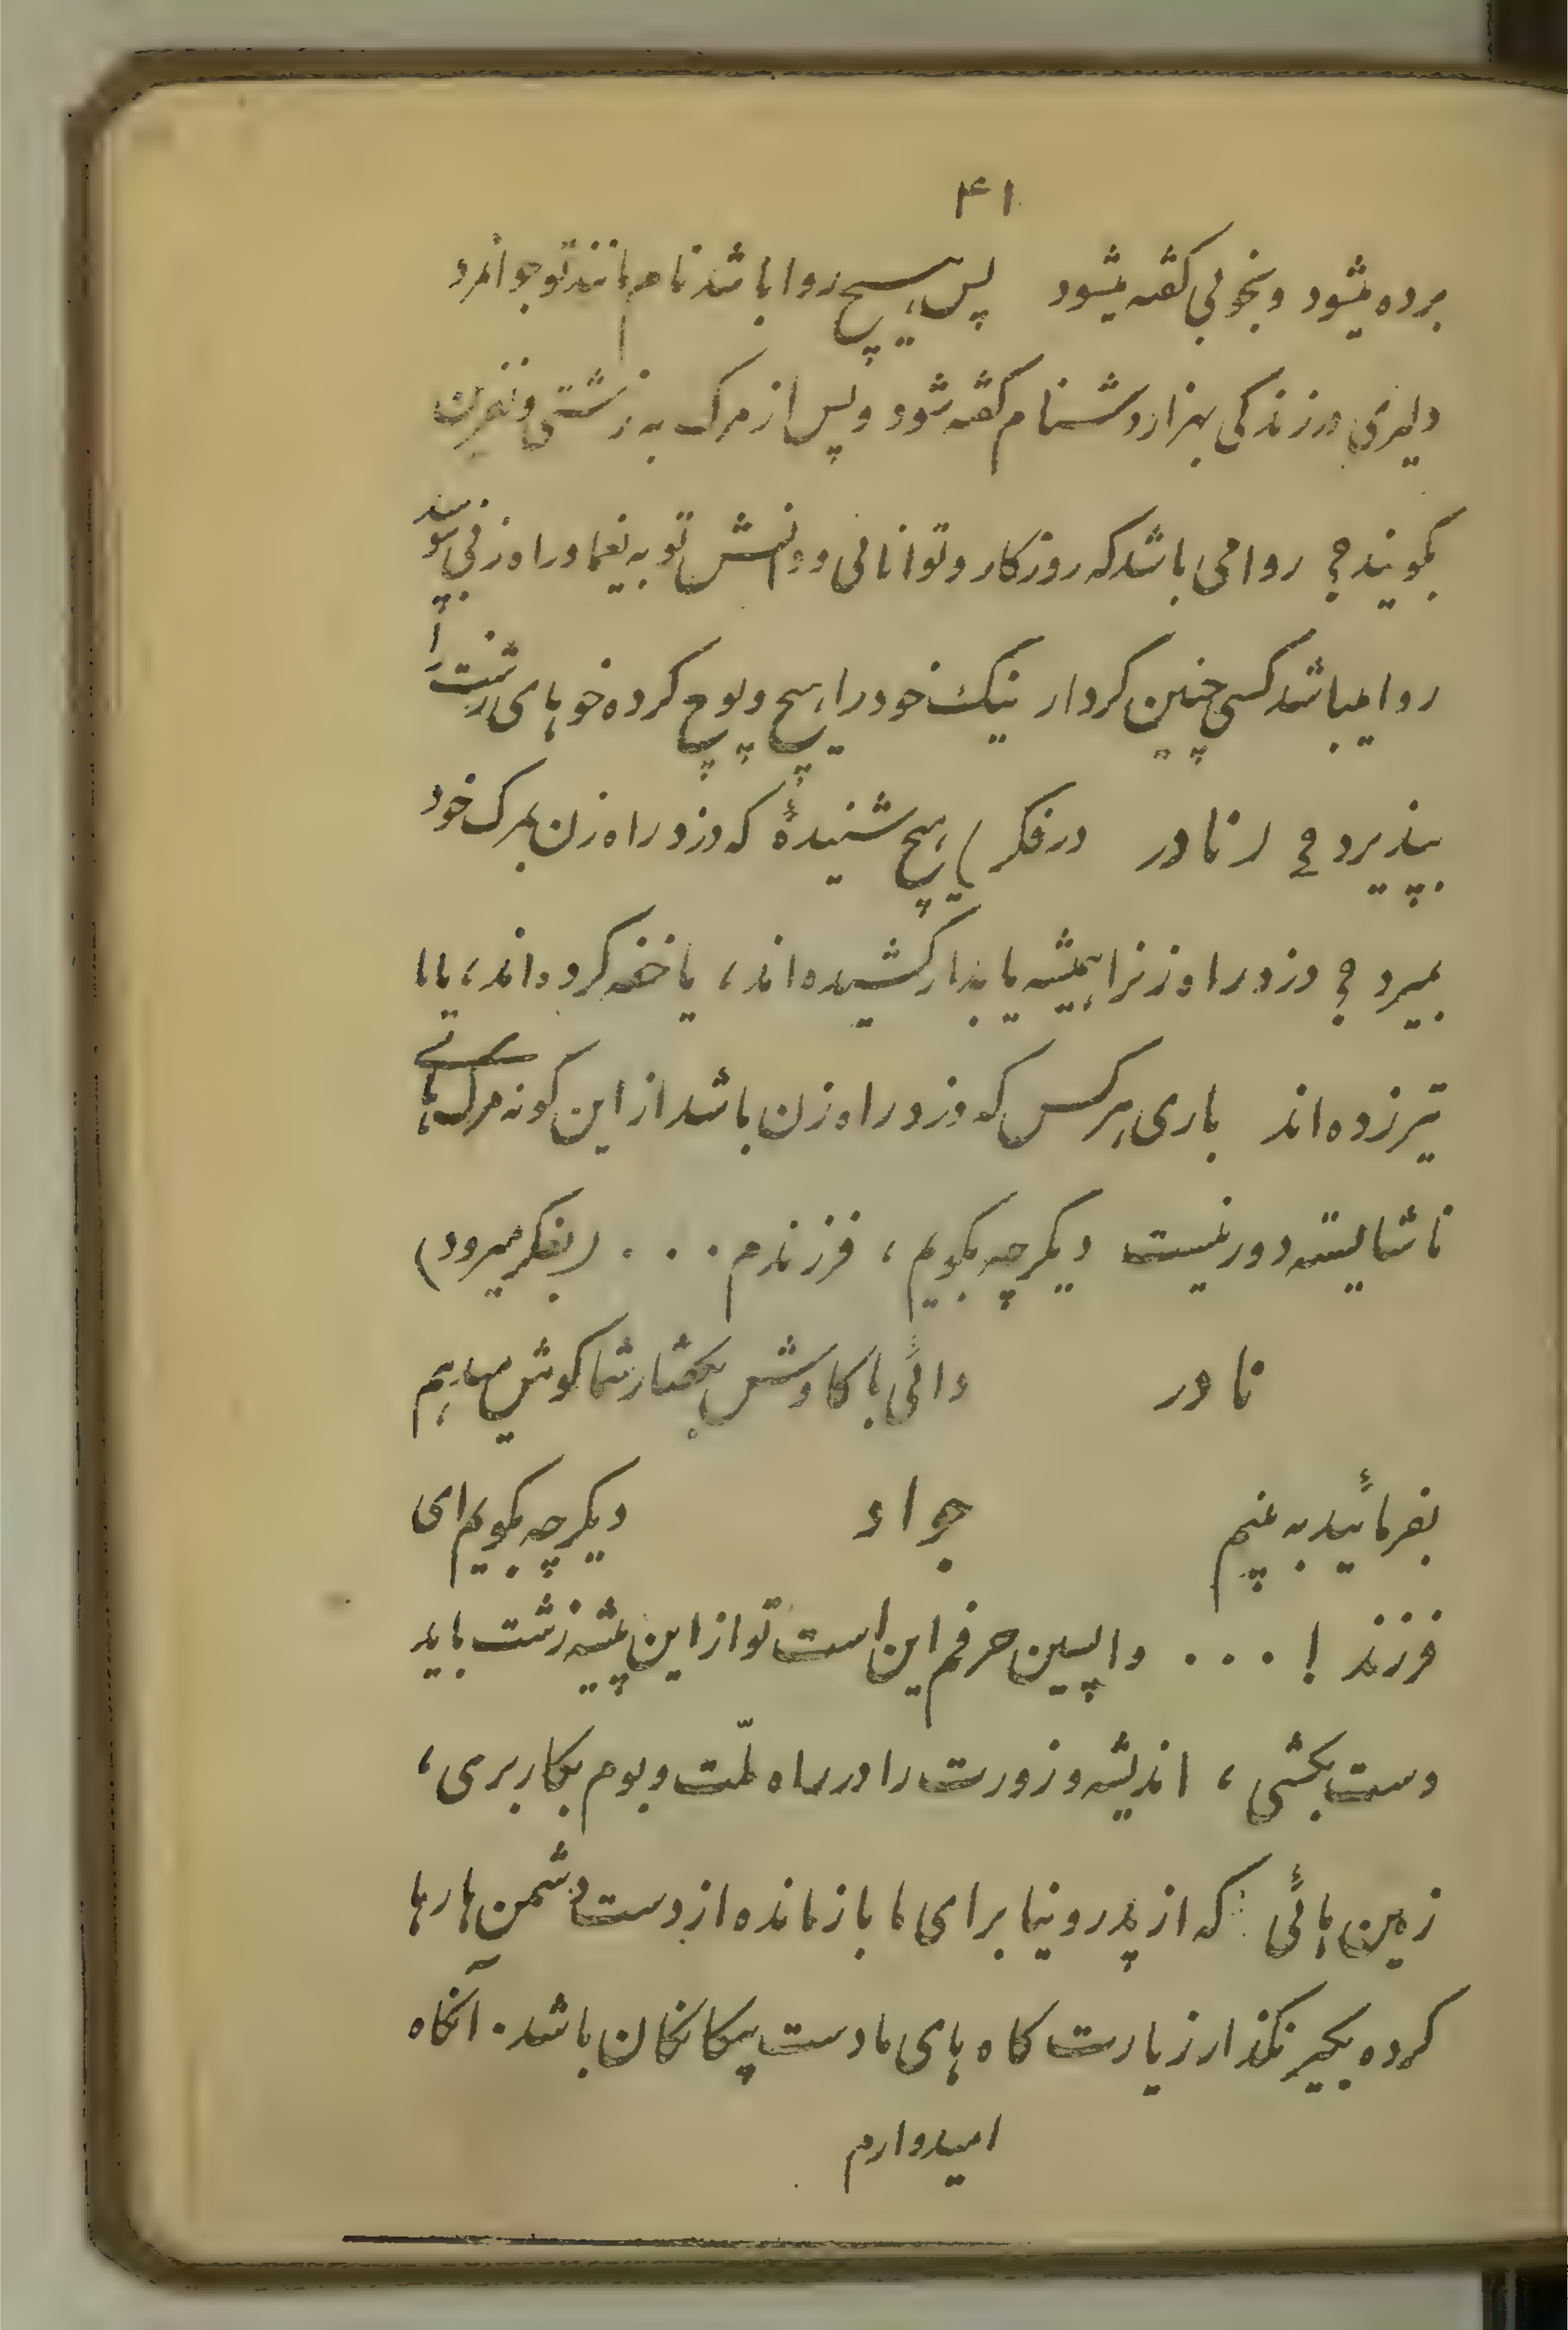 ۴۱
برده میشود وبخوبی گفته میشود پس هیچ روا باشد نام مانند تو جوانمرد
دلیری در زندگی بهزار دشنام گفته شود و پس از مرگ به زشتی و نفرین
بگویند؟ روا می باشد که روزگار و توانائی و دانش تو به یغما و راه زنی
روا میباشد کسی چنین کردار نیک خود را هیچ و پوچ کرده خوهای زشت را
بپذیرد؟ (نادر در فکر) هیچ شنیدهٔ که دزد و راه زن بمرگ خود
بمیرد؟ دزد و راه زنرا همیشه یا بدار کشیده اند، یا خفه کرده اند، یا با
تیر زده اند باری هر کس که دزد و راه زن باشد از این گونه مرگ های
ناشایسته دور نیست دیگر چه بگویم، فرزندم . . . (بفکر میرود)
نادر دائی با کاوش بگفتار شما گوش میدهم
بفرمائید به بینم جواد دیگر چه بگویم ای
فرزند ! . . . واپسین حرفم این است تو از این پیشه زشت باید
دست بکشی، اندیشه و زورت را در راه ملّت و بوم بکار بری،
زمین هائی که از پدر و نیا برای ما باز مانده از دست دشمن ها رها
کرده بگیر نگذار زیارت گاه های ما دست بیگانگان باشد. آنگاه
امیدوارم